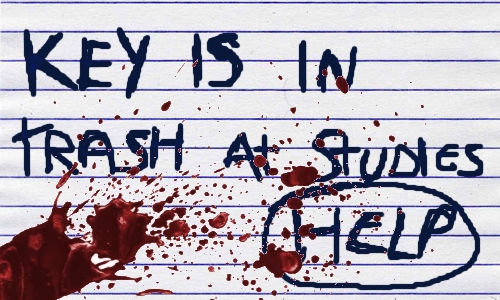 KEY IS IN
TRASH At StUDIES
HELP